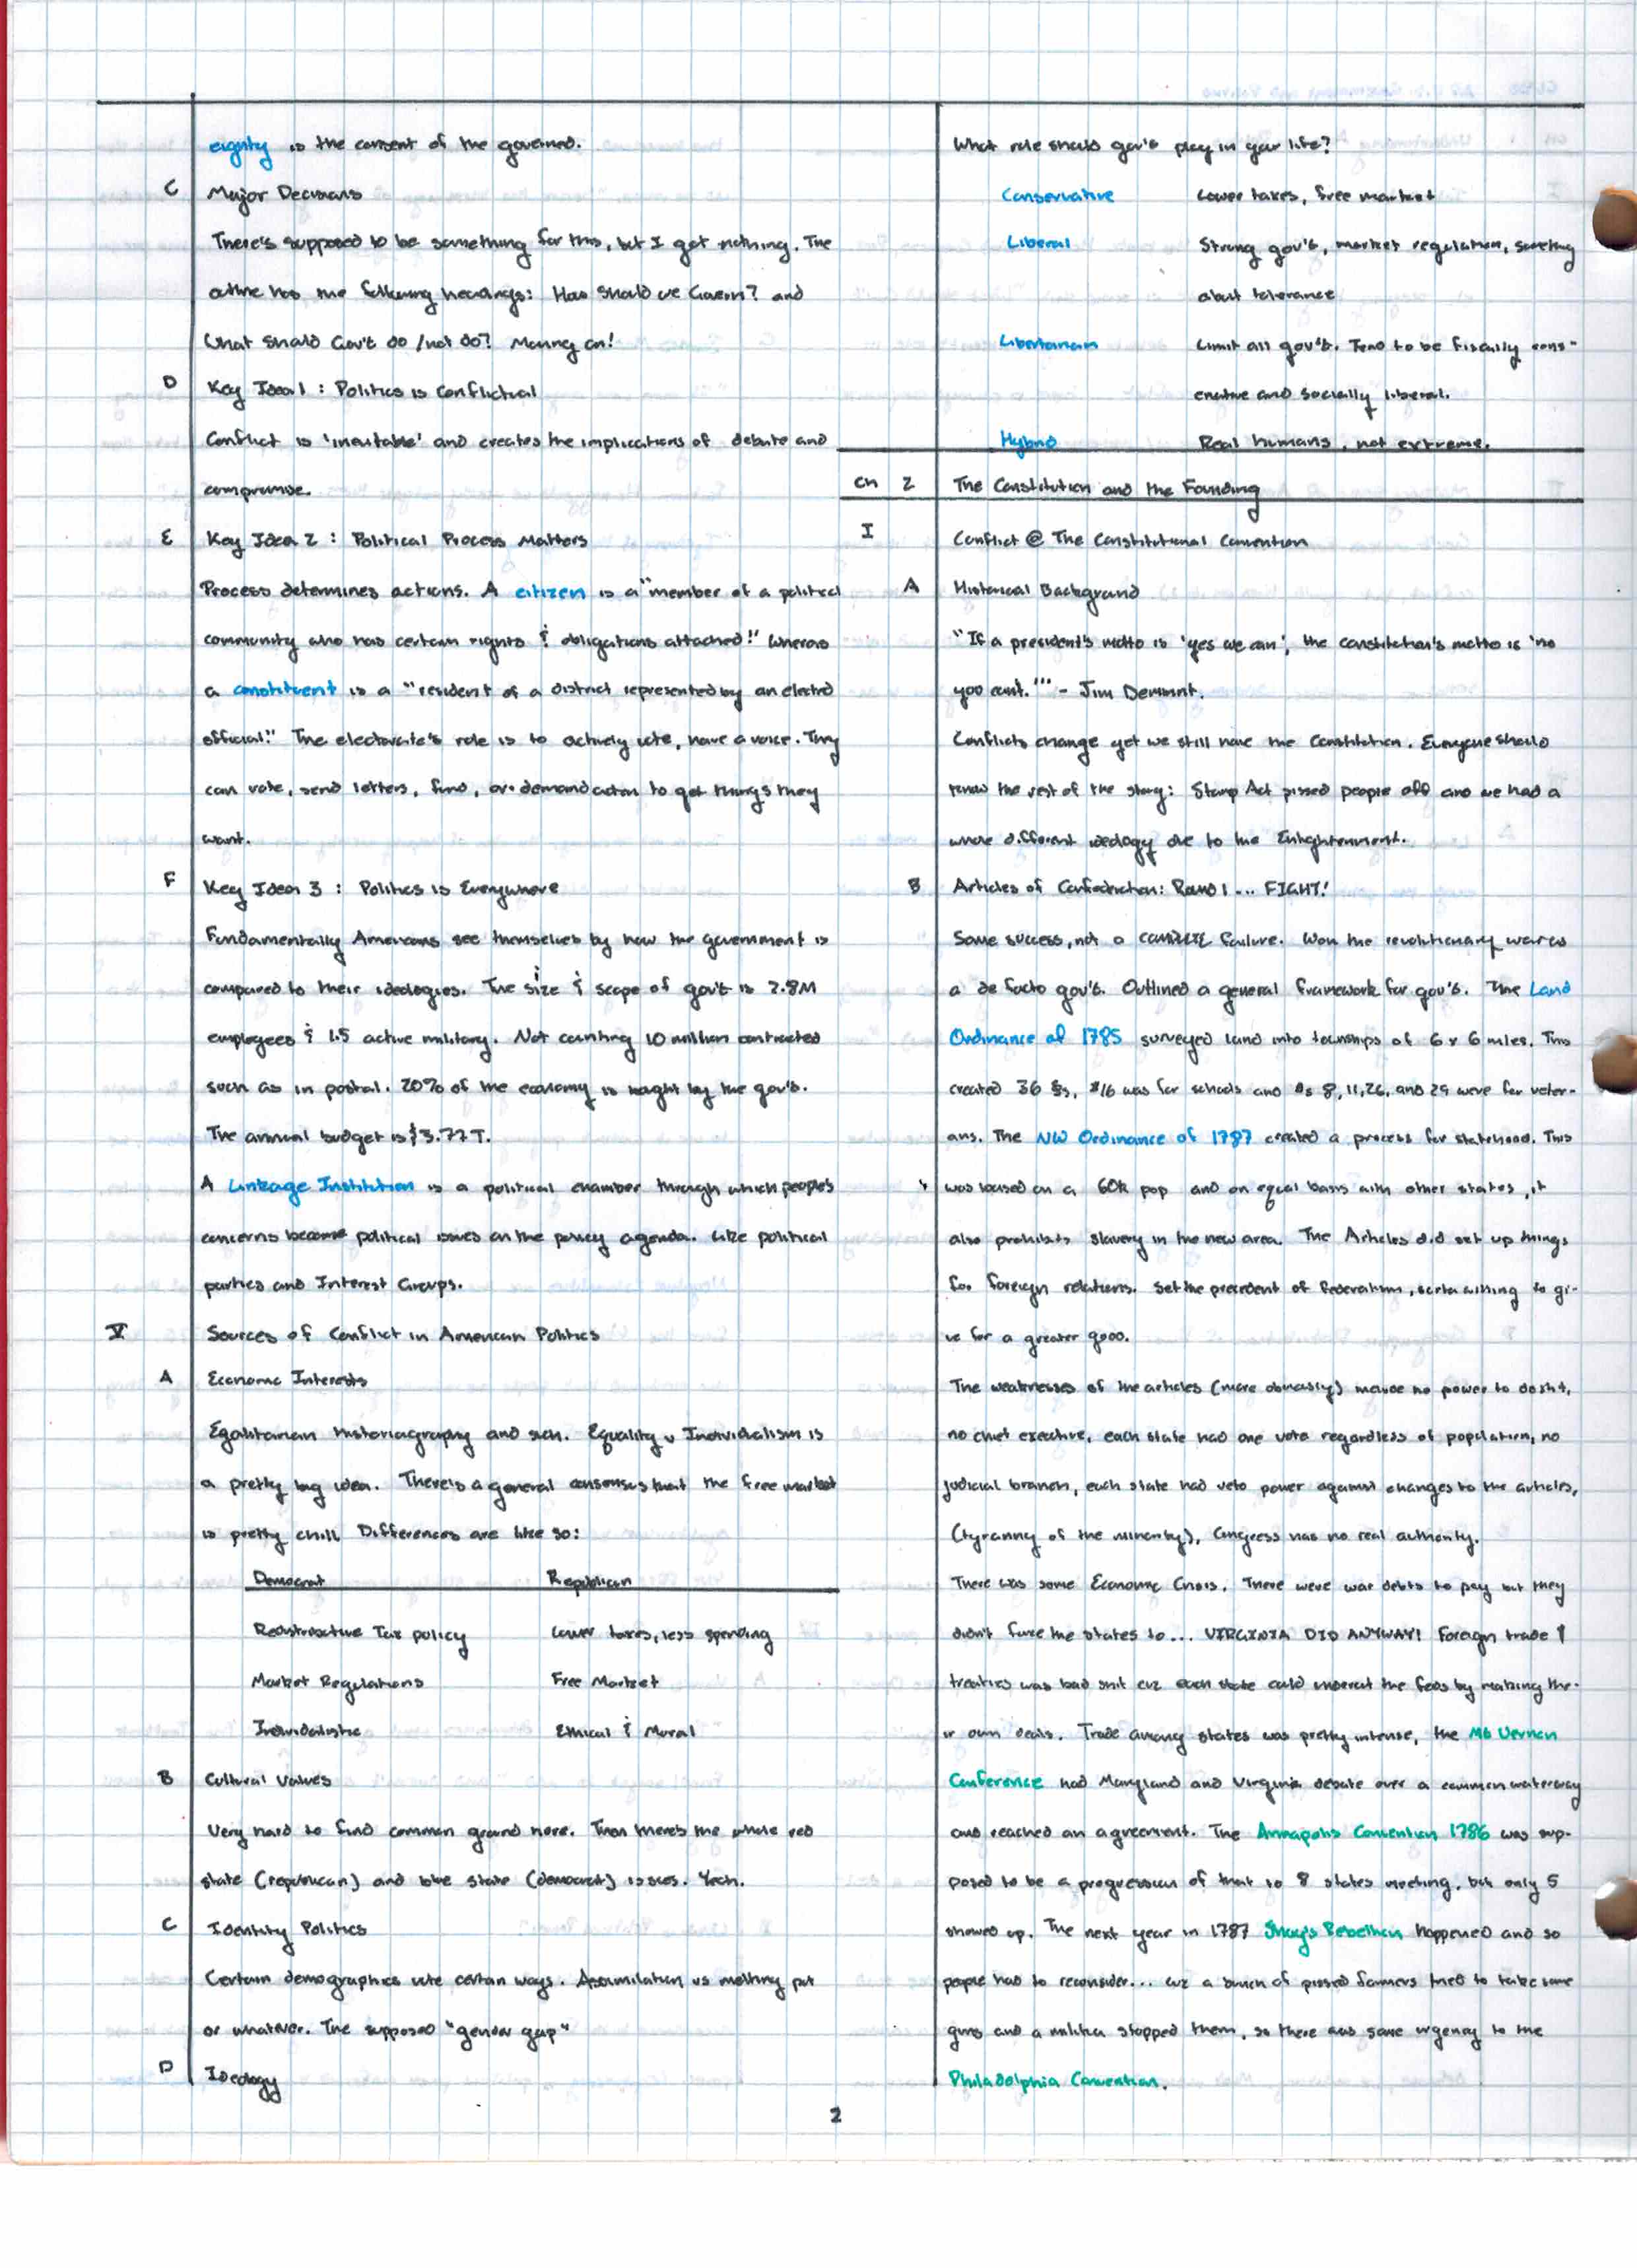 eignty is the consent of the governed.
C Major Decisions
There's supposed to be something for this, but I got nothing. The
outline has the following headings: How Should we Govern? and
What Should Gov't do / not do? Moving on!
D Key Idea 1 : Politics is Conflictual
Conflict is 'inevitable' and creates the implications of debate and
compromise.
E Key Idea 2 : Political Process Matters
Process determines actions. A citizen is a "member of a political
community who has certain rights & obligations attached!" Whereas
a constituent is a "resident of a district represented by an elected
official!" The electorate's role is to actively vote, have a voice. They
can vote, send letters, fund, or demand action to get things they
want.
F Key Idea 3 : Politics is Everywhere
Fundamentally Americans see themselves by how the government is
compared to their ideologies. The size & scope of gov't is 2.8M
employees & 1.5 active military. Not counting 10 million contracted
such as in postal. 20% of the economy is bought by the gov't.
The annual budget is $3.77 T.
A Linkage Institution is a political channel through which people's
concerns become political issues on the policy agenda. Like political
parties and Interest Groups.
V Sources of Conflict in American Politics
A Economic Interests
Egalitarian historiagraphy and such. Equality v Individualism is
a pretty big idea. There's a general consensus that the free market
is pretty chill Differences are like so:
Democrat Republican
Redistributive Tax policy Lower taxes, less spending
Market Regulations Free Market
Individualistic Ethical & Moral
B Cultural Values
Very hard to find common ground here. Then there's the whole red
state (republican) and blue state (democrat) issues. Yech.
C Identity Politics
Certain demographics vote certain ways. Assimilation vs melting pot
or whatever. The supposed "gender gap"
D Ideology
What role should gov't play in your life?
Conservative Lower taxes, free market
Liberal Strong gov't, market regulation, something
about tolerance
Libertarian Limit all gov't. Tend to be fiscally cons-
ervative and socially liberal.
Hybrid Real humans, not extreme.
Ch 2 The Constitution and the Founding
I Conflict @ The Constitutional Convention
A Historical Background
"If a president's motto is 'yes we can', the constitution's motto is 'no
you cant.'" - Jim Demint.
Conflicts change yet we still have the Constitution. Everyone should
know the rest of the story: Stamp Act pissed people off and we had a
whole different ideology due to the Enlightenment.
B Articles of Confederation: Round 1... FIGHT!
Some success, not a COMPLETE failure. Won the revolutionary war as
a de facto gov't. Outlined a general framework for gov't. The Land
Ordinance of 1785 surveyed land into townships of 6 x 6 miles. This
created 36 §s, #16 was for schools and #s 8, 11, 26, and 29 were for veter-
ans. The NW Ordinance of 1787 created a process for statehood. This
was based on a 60k pop and on equal basis with other states, it
also prohibits slavery in the new area. The Articles did set up things
for foreign relations. Set the precedent of federalism, sorta willing to gi-
ve for a greater good.
The weaknesses of the articles (more obviously) no power to do sht,
no chief executive, each state had one vote regardless of population, no
judicial branch, each state had veto power against changes to the articles,
(tyranny of the minority), Congress has no real authority.
There was some Economic Crisis. There were war debts to pay but they
didn't force the states to... VIRGINIA DID ANYWAY! Foreign trade &
treaties was bad shit cuz each state could undercut the feds by making the-
ir own deals. Trade among states was pretty intense, the Mt Vernon
Conference had Maryland and Virginia debate over a common waterway
and reached an agreement. The Annapolis Convention 1786 was sup-
posed to be a progression of that to 8 states meeting, but only 5
showed up. The next year in 1787 Shay's Rebellion happened and so
people had to reconsider... cuz a bunch of pissed farmers tried to take some
guns and a militia stopped them, so there was some urgency to the
Philadelphia Convention.
2